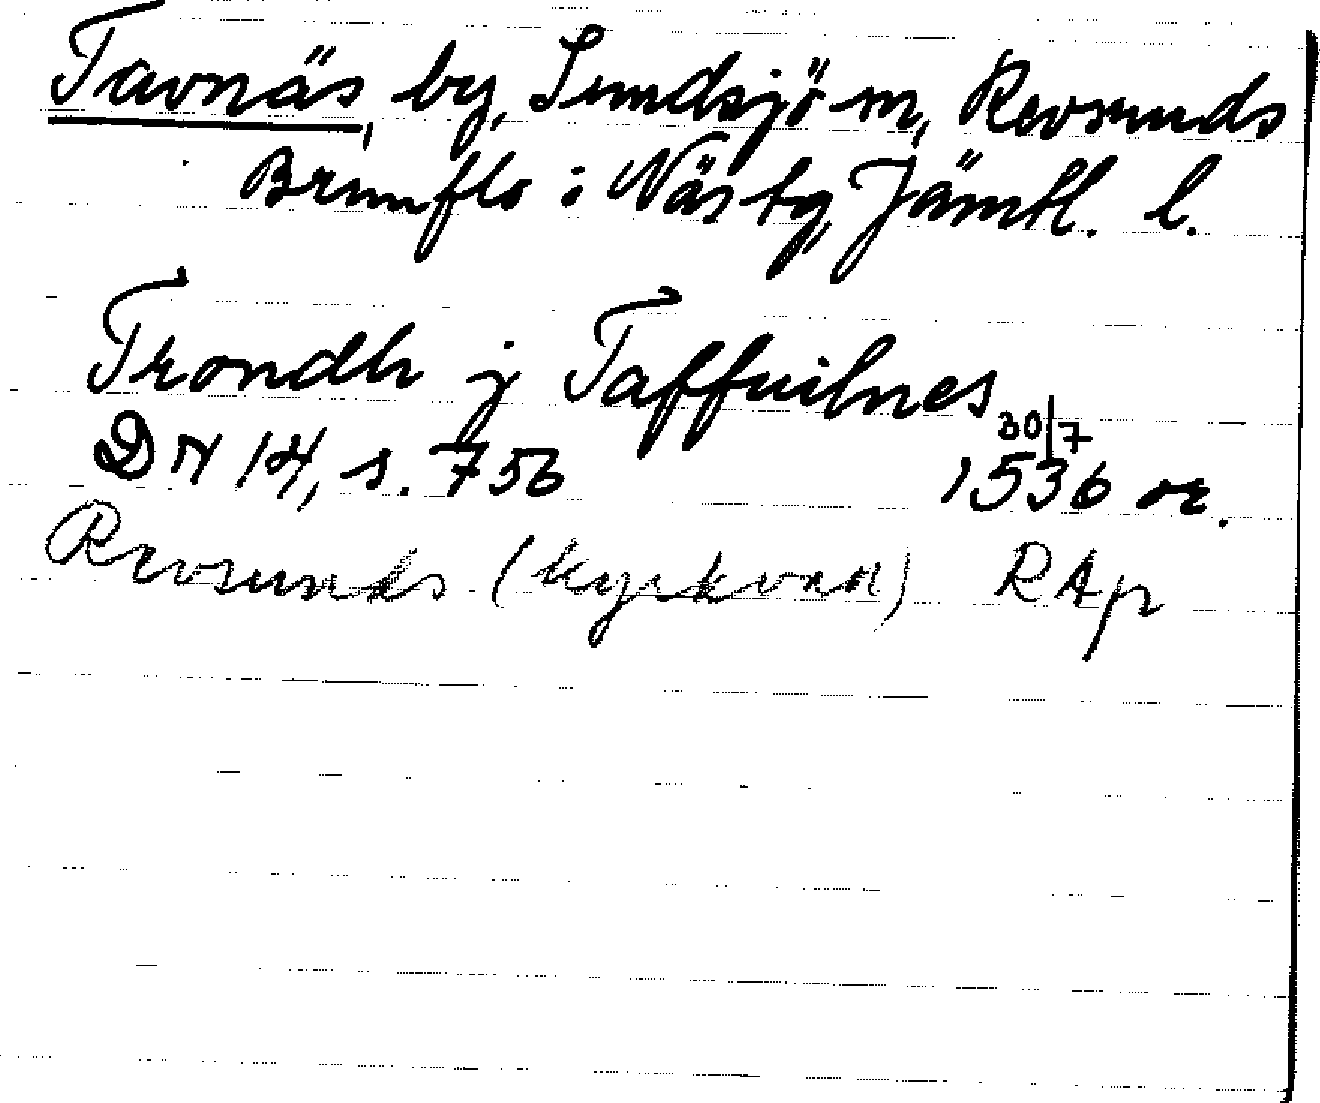 Tavnäs, by, Sundsjö sn, Revsunds
Brunflo i Näs tg, Jämtl. l.
Trondh j Taffuilnes
DN 14, s. 756 30/7 1536 or.
Revsunds (kyrkvan) RAp